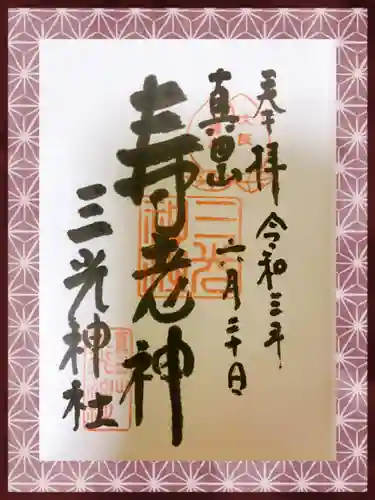 奉拝
令和三年
六月二十日
真田山
寿老神
三光神社
三光
神社